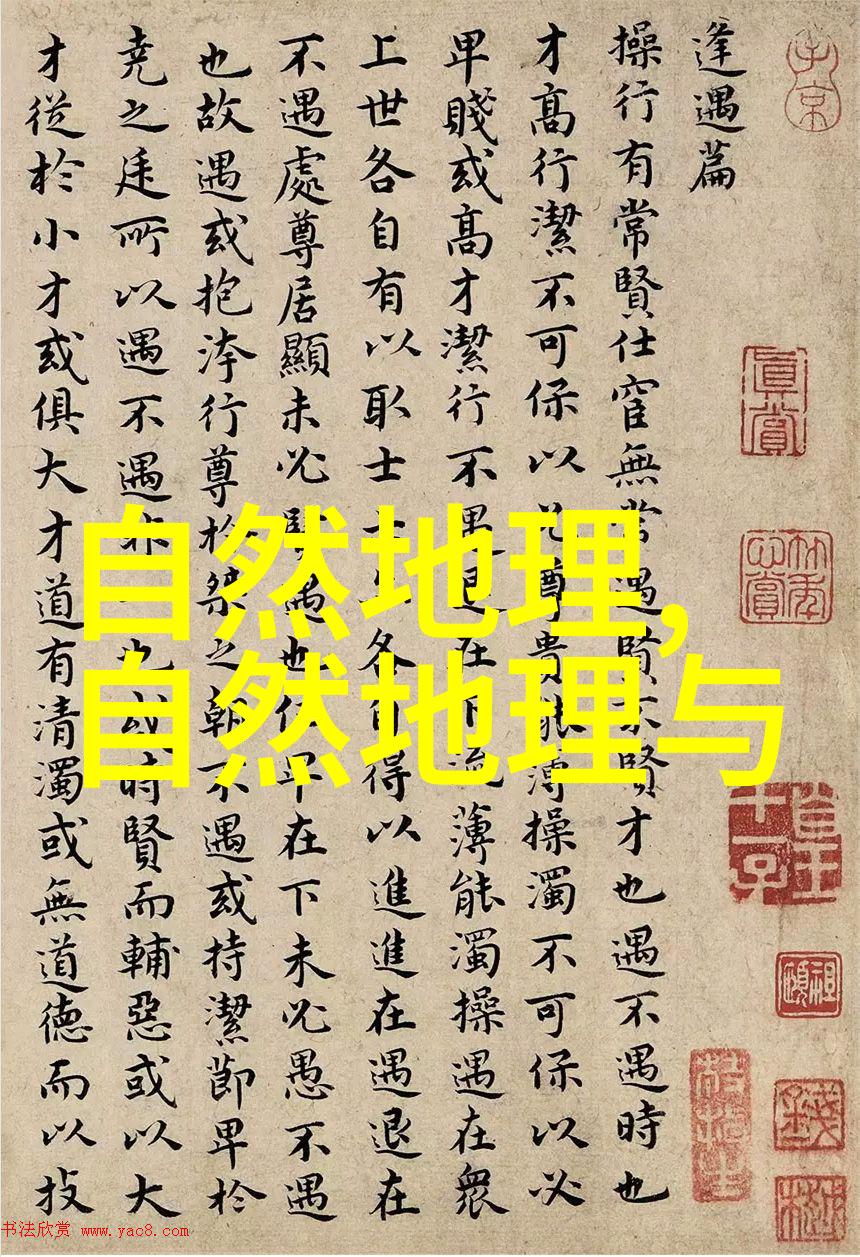 逢遇篇
操行有常賢仕宦無常遇賢不賢才也遇不遇時也
才高行潔不可保以必尊貴能薄操濁不可保以必
卑賤或高才潔行不遇退在下流薄能濁操遇在衆
上世各自有以取士士亦各自得以進進在遇退在
不遇處尊居顯未必賢遇也位卑在下未必愚不遇
也故遇或抱洿行尊於桀之朝不遇或持潔節卑於
堯之廷所以遇不遇非一也或時賢而輔惡或以大
才從於小才或俱大才道有清濁或無道德而以技
自然地理,
自然地理与
真賞
书法欣赏 www.yac8.com